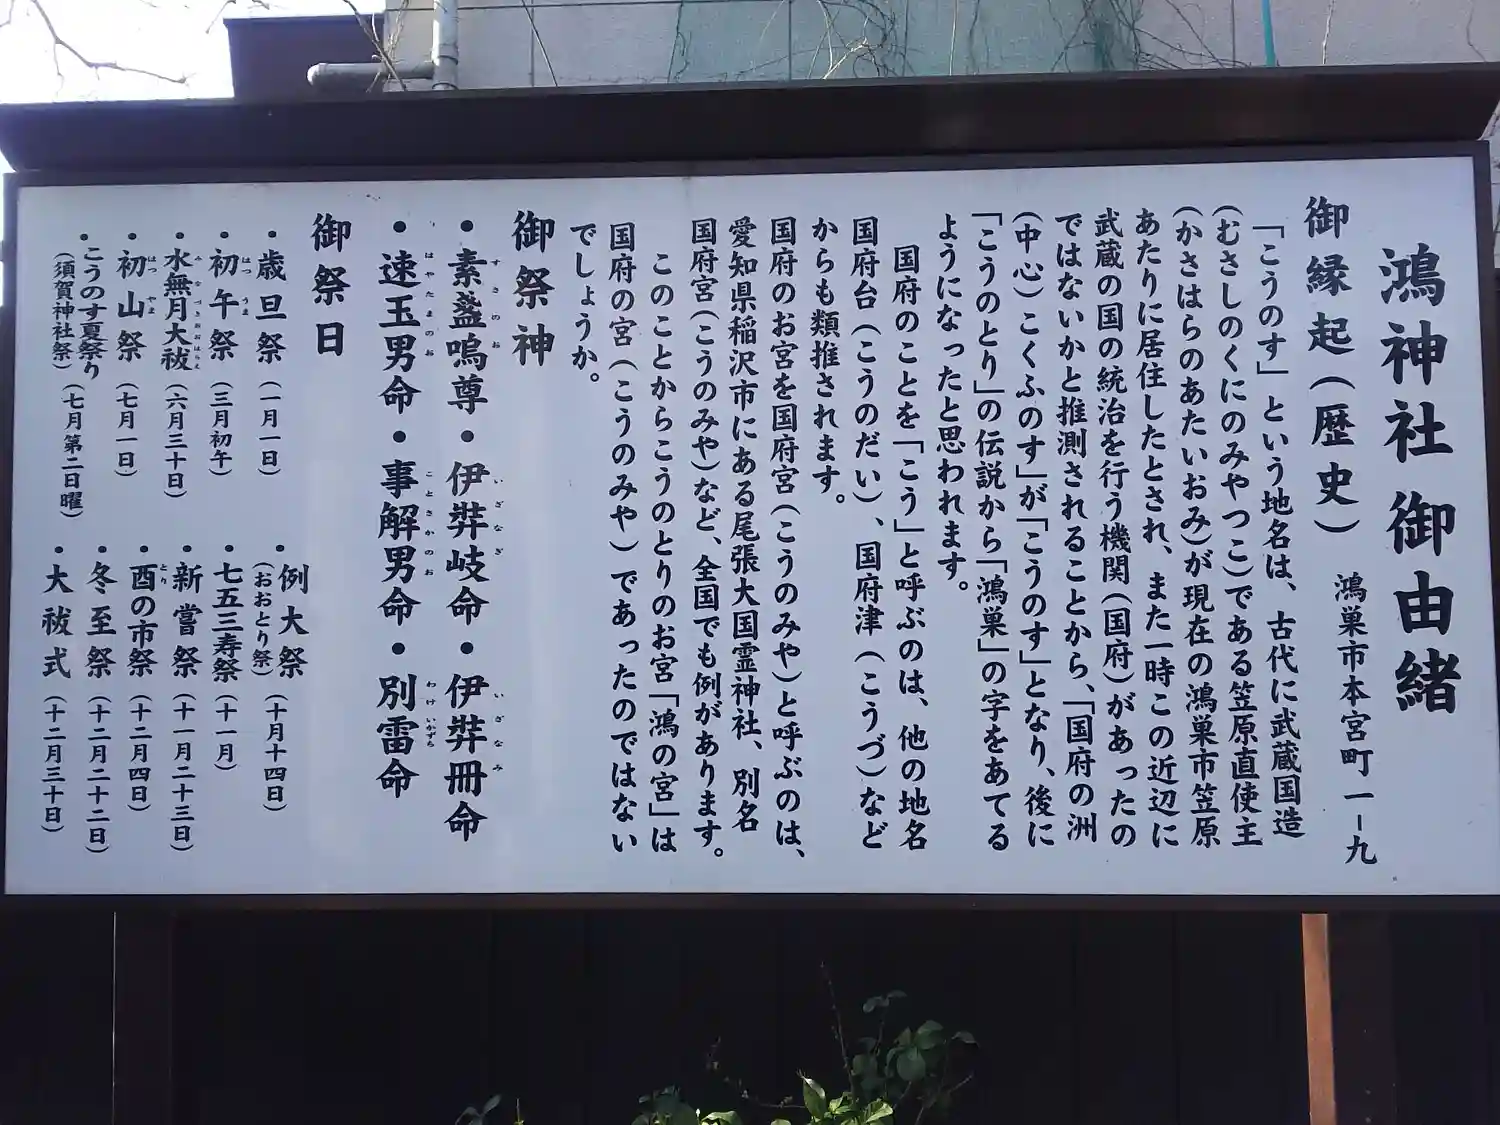 鴻神社御由緒
御縁起(歴史) 鴻巣市本宮町一ー九
「こうのす」という地名は、古代に武蔵国造
(むさしのくにのみやつこ)である笠原直使主
(かさはらのあたいおみ)が現在の鴻巣市笠原
あたりに居住したとされ、また一時この近辺に
武蔵の国の統治を行う機関(国府)があったの
ではないかと推測されることから、「国府の洲
(中心)こくふのす」が「こうのす」となり、後に
「こうのとり」の伝説から「鴻巣」の字をあてる
ようになったと思われます。
国府のことを「こう」と呼ぶのは、他の地名
国府台(こうのだい)、国府津(こうづ)など
からも類推されます。
国府のお宮を国府宮(こうのみや)と呼ぶのは、
愛知県稲沢市にある尾張大国霊神社、別名
国府宮(こうのみや)など、全国でも例があります。
このことからこうのとりのお宮「鴻の宮」は
国府の宮(こうのみや)であったのではない
でしょうか。
御祭神
・素盞嗚尊・伊弉岐命・伊弉冊命
すさのお いざなぎ いざなみ
・速玉男命・事解男命・別雷命
はやたまのお ことさかのお わけいかづち
御祭日
・歳旦祭(一月一日)
・初午祭(三月初午)
はつうま
・水無月大祓(六月三十日)
みなづきおおはらえ
・初山祭(七月一日)
はつやま
・こうのす夏祭り(七月第二日曜)
(須賀神社祭)
・例大祭(十月十四日)
(おおとり祭)
・七五三寿祭(十一月)
・新嘗祭(十一月二十三日)
・酉の市祭(十二月四日)
とり
・冬至祭(十二月二十二日)
・大祓式(十二月三十日)